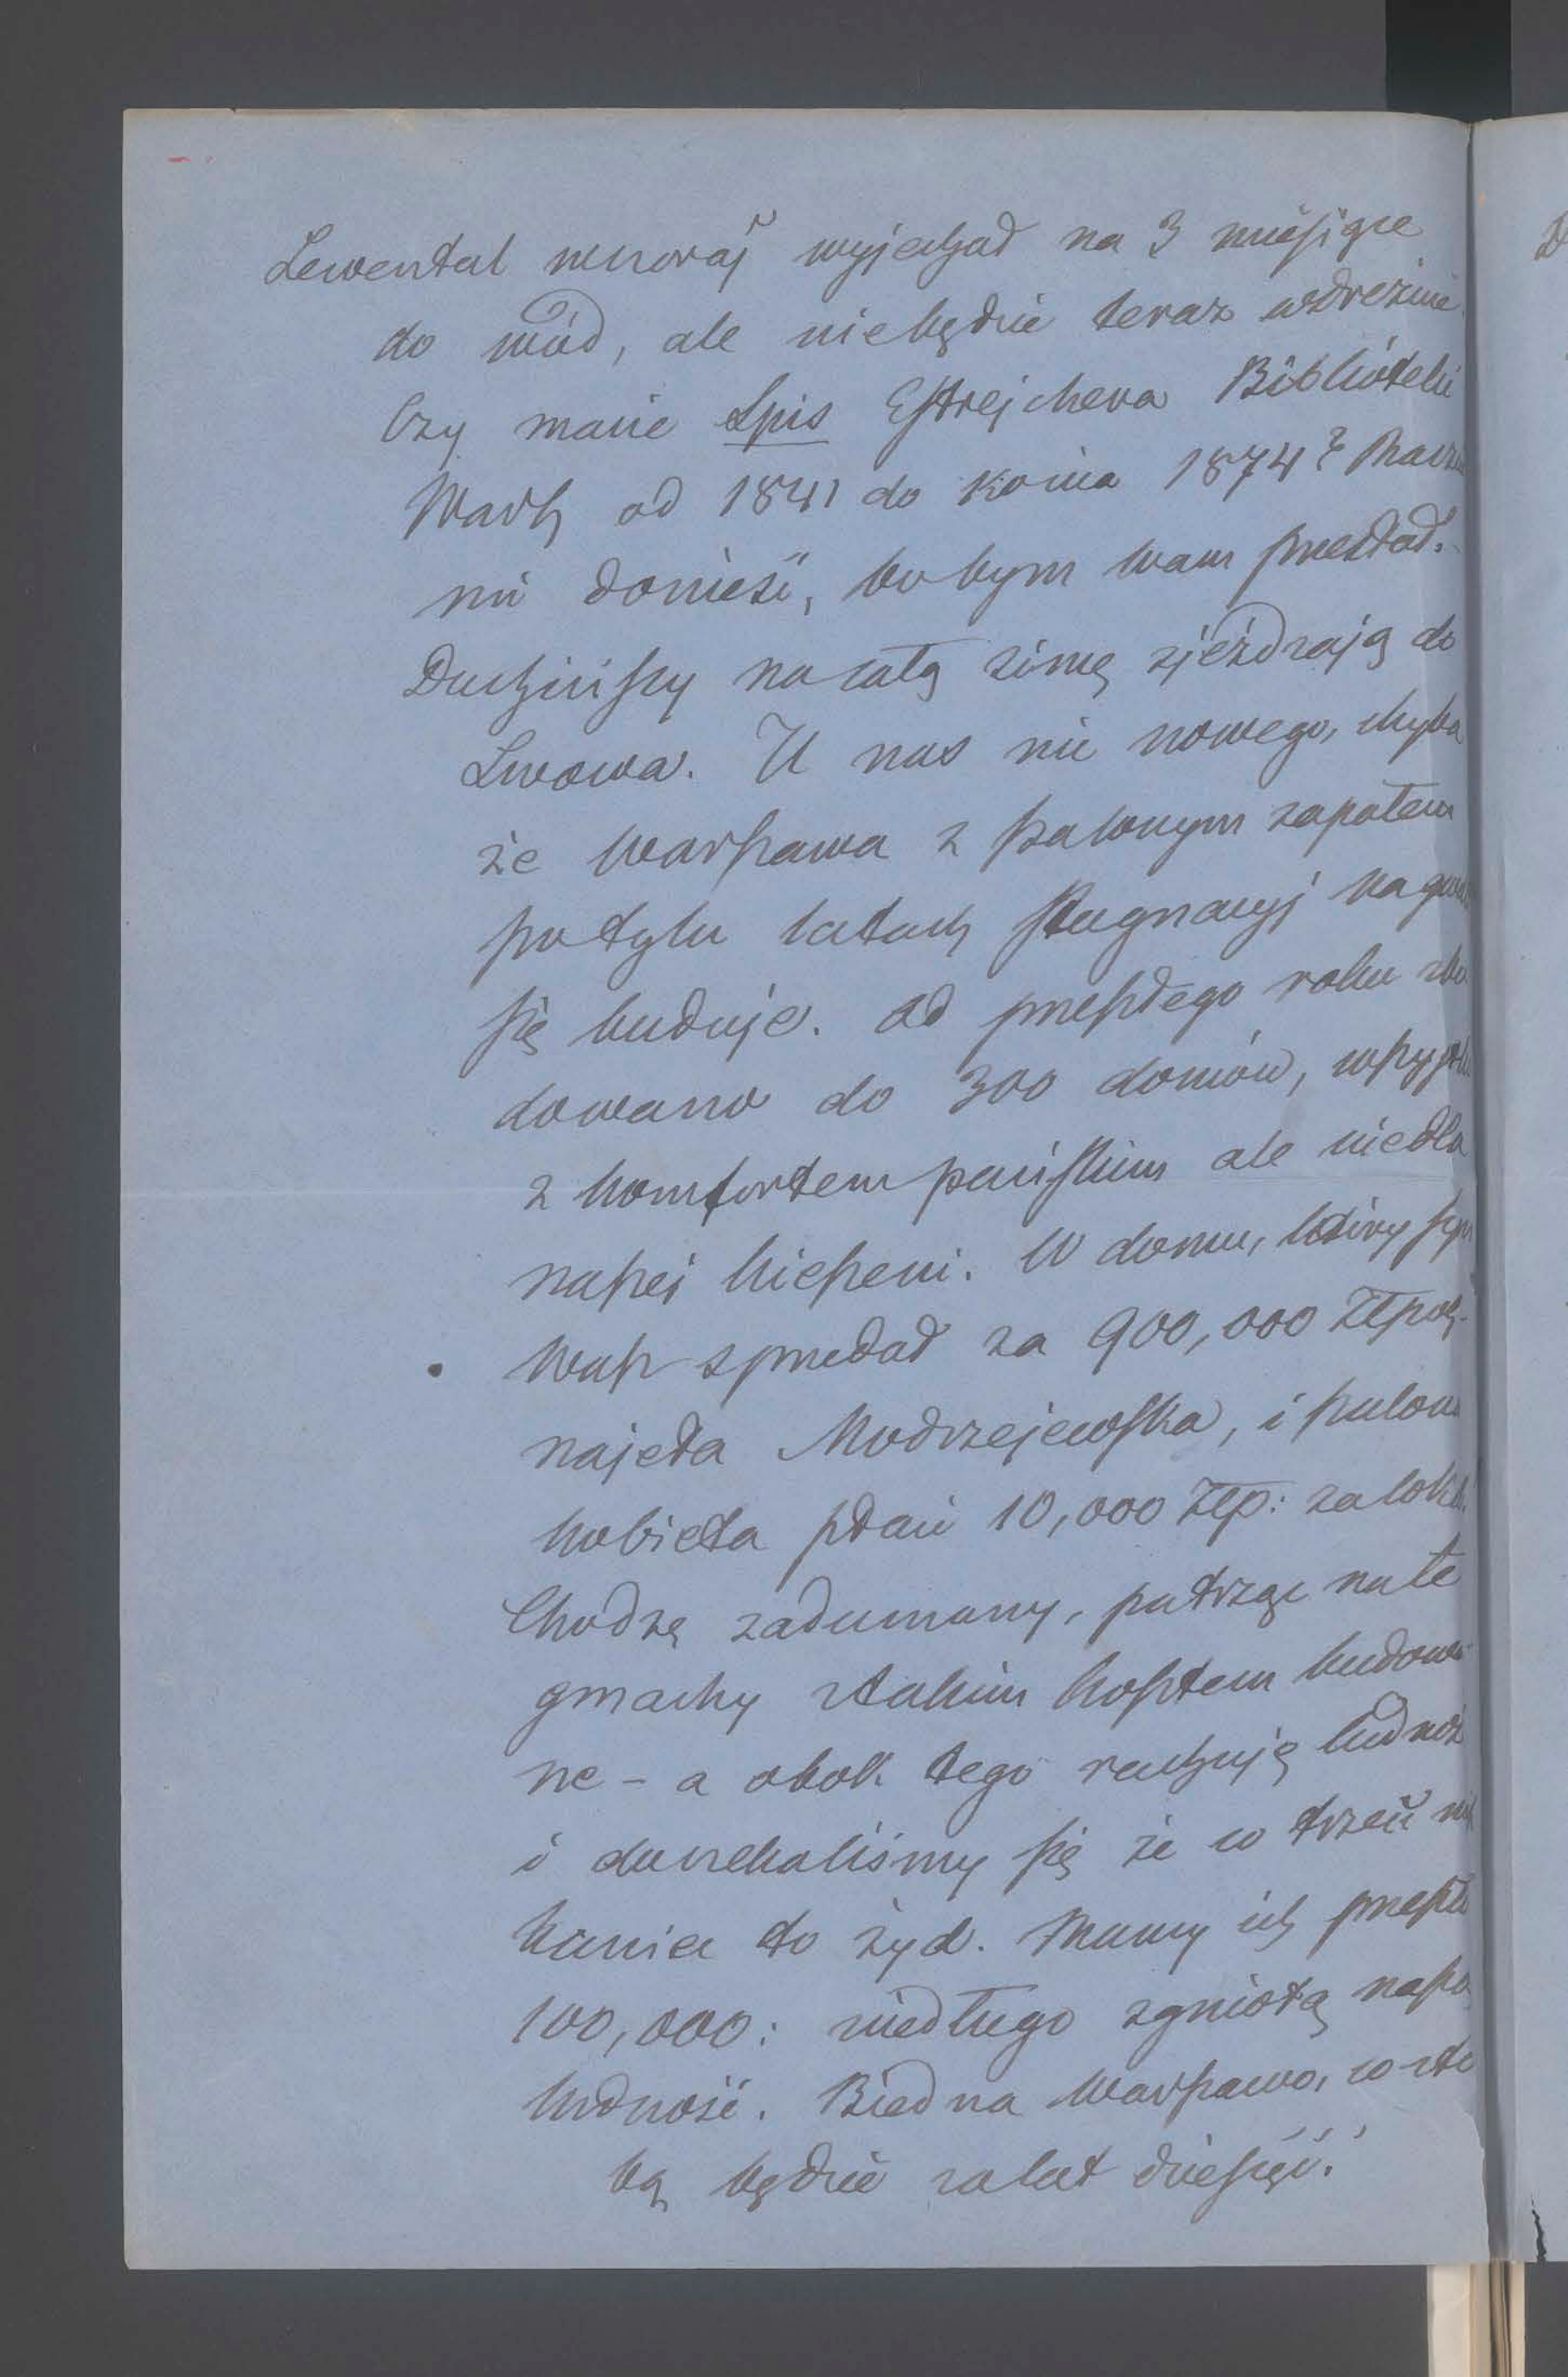 Lewental wczoraj wyjechał na 3 miesiące
do wód, ale niebędzie teraz w Dreźnie.
Czy macie Spis Estrejchera Biblióteki
Warsz od 1841 do końca 1874? Racz
mi donieść, bo bym wam przesłał.
Duchińscy na całą zimę zjeżdżają do
Lwowa. U nas nic nowego, chyba
że Warszawa z szalonym zapałem
po tylu latach stagnacyj na gwałt
się buduje. Od przeszłego roku zbu
dowano do 300 domów, wszystkie
z komfortem pańskim ale niedla
naszej kieszeni. W domu, który syn
wasz sprzedał za 900,000 Złpols.
najęła Modrzejewska, i szalona
kobieta płaci 10,000 złp: za lokal.
Chodzę zadumany, patrząc na te
gmachy z takim kosztem budowa
ne - a obok tego rachuję ludność
i doczekaliśmy się że w trzeci mie
szkaniec to żyd. Mamy ich przeszło
100,000: niedługo zgniotą naszą
ludność. Biedna Warszawo, co z to
bą będzie za lat dziesięć!